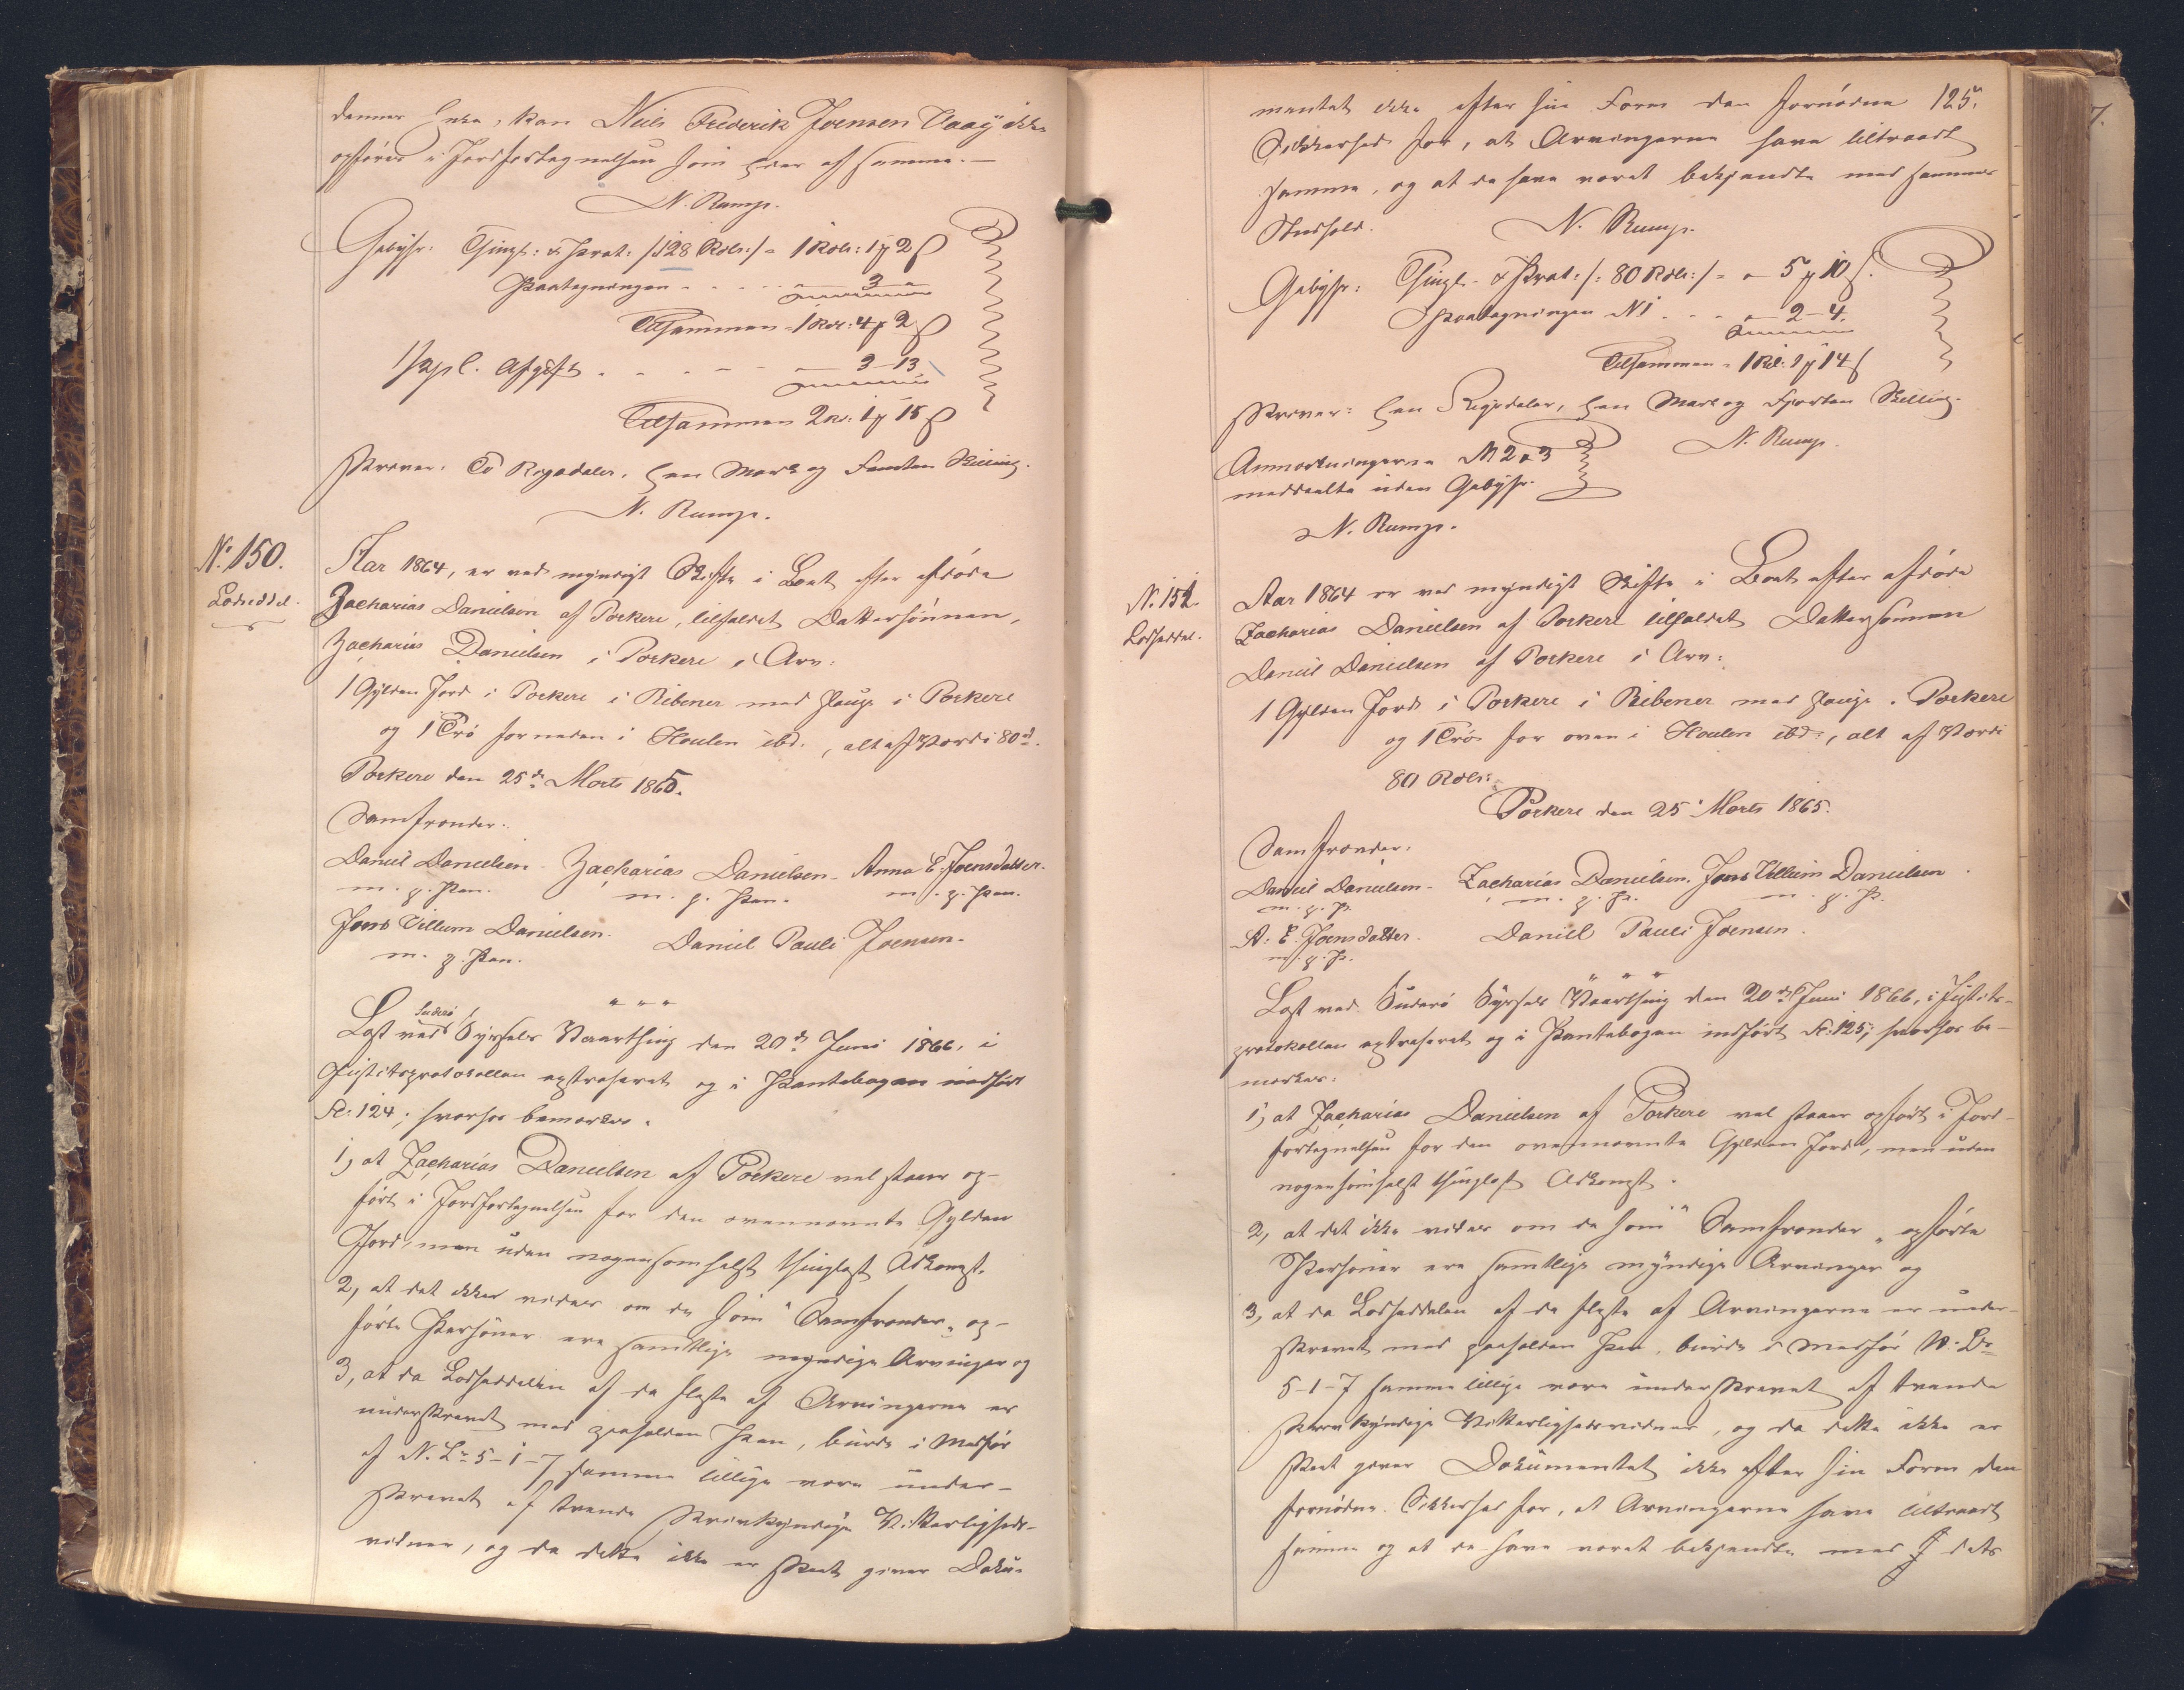 denne Enke, kan Niels Frederik Joensen Vaag ikke
opføres i Jordfortegnelsen som Eier af samme.—
N. Rump.
Gebyhr: Thingl: & Skrat: /:128 Rdlr:/ = 1 Rdlr: 1 ℳ 2 ß
Paategningen - . . . - " - 3 - "
Tilsammen - 1 Rdlr: 4 ℳ 2 ß
½ pC. Afgift . . . . - - 3 - 13
Tilsammen 2 Rd: 1 ℳ 15 ß
skriver: To Rigsdaler, Een Mark og Femten Skilling.
N. Rump.
No. 150.
Lodseddel.
Aar 1864, er ved myndigt Skifte i Boet efter afdøde
Zacharias Danielsen af Porkere, tilfaldet Dattersønnen,
Zacharias Danielsen i Porkere i Arv:
1 Gylden Jord i Porkere i Ribener med Hauge i Porkere
og 1 Trø forneden i Houlen ibd., alt af Værdi 80 rd.
Porkere den 25de Marts 1865.
Samfrænder.
Daniel Danielsen - Zacharias Danielsen - Anna E. Joensdatter.
m. p. Pen. m. p. Pen. m. p. Pen.
Jens Villum Danielsen. Daniel Pauli Joensen.
m. p. Pen.
" " "
Suderø
Læst ved Syssels Vaarthing den 20de Juni 1866, i
Justitsprotokollen extraheret og i Pantebogen indført
Fol: 124; hvorhos bemærkes.
1, at Zacharias Danielsen af Porkere vel staaer op-
ført i Jordfortegnelsen for den ovennævnte Gylden
Jord, men uden nogensomhelst thinglæst Adkomst.
2, at det ikke vides om de som "Samfrænder" op-
førte Personer ere samtlige myndige Arvinger og
3, at da Lodseddelen af de fleste af Arvingerne er
underskrevet med paaholden Pen, burde i Medfør
af N. L. 5-1-7 samme tillige være under-
skrevet af tvende skrivkyndige Vitterligheds-
vidner, og da dette ikke er skeet giver Doku-
125.
mentet ikke efter sin Form den fornødne
Sikkerhed for, at Arvingerne have tiltraadt
samme, og at de have været bekjendte med sammes
Indhold. N. Rump.
Gebyhr: Thingl- & Skrat: /: 80 Rdlr:/ = " 5 ℳ 10 ß.
Paategningen No 1 . . . " - 2 - 4.
Tilsammen - 1 Rd: 1 ℳ 14 ß
skriver: Een Rigsdaler, Een Mark og Fjorten Skilling.
N. Rump.
Anmærkningerne No 2 & 3
meddeelte uden Gebyhr.
N. Rump.
No. 151.
Lodseddel.
Aar 1864 er ved myndigt Skifte i Boet efter afdøde
Zacharias Danielsen af Porkere tilfaldet Dattersønnen
Daniel Danielsen af Porkere i Arv:
1 Gylden Jord i Porkere i Ribener med Hauge i Porkere
og 1 Trø for oven i Houlen ibd:, alt af Værdi
80 Rdlr:
Porkere den 25' Marts 1865.
Samfrænder:
Daniel Danielsen - Zacharias Danielsen. Jens Villum Danielsen.
m. p. P. m. p. P. m. p. P.
A: E. Joensdatter. Daniel Pauli Joensen.
m. p. P.
" " "
Læst ved Suderø Syssels Vaarthing den 20de Juni 1866, i Justits-
protokollen extraheret og i Pantebogen indført Fol: 125; hvorhos be-
mærkes:
1, at Zacharias Danielsen af Porkere vel staaer opført i Jord-
fortegnelsen for den ovennævnte Gylden Jord, men uden
nogensomhelst thinglæst Adkomst.
2, at det ikke vides om de som "Samfrænder" opførte
Personer ere samtlige myndige Arvinger og
3, at da Lodseddelen af de fleste af Arvingerne er under-
skrevet med paaholden Pen, burde i Medfør N. L.
5-1-7 samme tillige være underskrevet af tvende
skrivkyndige Vitterlighedsvidner, og da dette ikke er
skeet giver Dokumentet ikke efter sin Form den
fornødne Sikkerhed for, at Arvingerne have tiltraadt
samme og at de have været bekjendte med dets